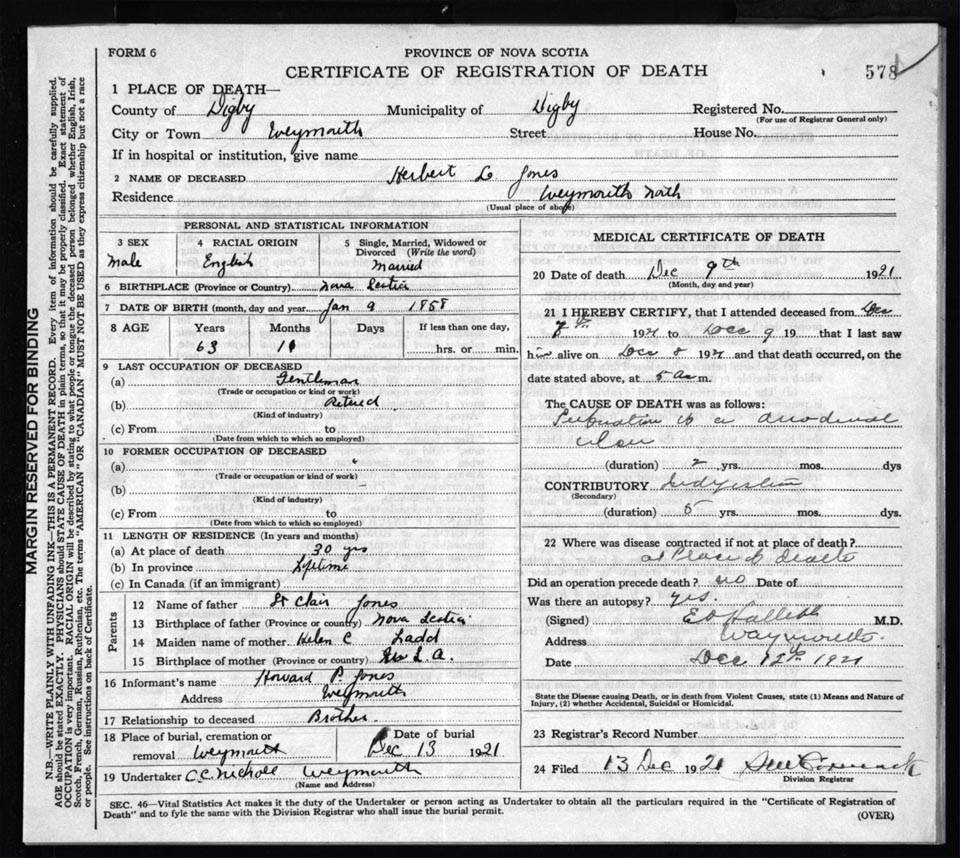 FORM 6
PROVINCE OF NOVA SCOTIA
CERTIFICATE OF REGISTRATION OF DEATH
578
1 PLACE OF DEATH—
County of Digby Municipality of Digby Registered No.
(For use of Registrar General only)
City or Town Weymouth Street House No.
If in hospital or institution, give name
2 NAME OF DECEASED Herbert L Jones
Residence Weymouth North
(Usual place of abode)
PERSONAL AND STATISTICAL INFORMATION
3 SEX 4 RACIAL ORIGIN 5 Single, Married, Widowed or
Divorced (Write the word)
Male English Married
6 BIRTHPLACE (Province or Country) Nova Scotia
7 DATE OF BIRTH (month, day and year) Jan 9 1858
8 AGE Years Months Days If less than one day,
63 11 hrs. or min.
9 LAST OCCUPATION OF DECEASED
(a) Gentleman
(Trade or occupation or kind of work)
(b) Retired
(Kind of industry)
(c) From to
(Date from which to which so employed)
10 FORMER OCCUPATION OF DECEASED
(a)
(Trade or occupation or kind of work)
(b)
(Kind of industry)
(c) From to
(Date from which to which so employed)
11 LENGTH OF RESIDENCE (In years and months)
(a) At place of death 30 yrs
(b) In province Lifetime
(c) In Canada (if an immigrant)
Parents
12 Name of father St Clair Jones
13 Birthplace of father (Province or country) Nova Scotia
14 Maiden name of mother Helen C Ladd
15 Birthplace of mother (Province or country) S.A.
16 Informant's name Howard P. Jones
Address Weymouth
17 Relationship to deceased Brother
18 Place of burial, cremation or Date of burial
removal Weymouth Dec 13 1921
19 Undertaker C.C. Nichole Weymouth
(Name and Address)
MEDICAL CERTIFICATE OF DEATH
20 Date of death Dec 9th 1921
(Month, day and year)
21 I HEREBY CERTIFY, that I attended deceased from Dec
8th 1921 to Dec 9 19 that I last saw
him alive on Dec 8 1921 and that death occurred, on the
date stated above, at 5 a m.
The CAUSE OF DEATH was as follows:
a duodenal
ulcer
(duration) 2 yrs. mos. dys
CONTRIBUTORY Indigestion
(Secondary)
(duration) 5 yrs. mos. dys.
22 Where was disease contracted if not at place of death?
at Place of death
Did an operation precede death? no Date of
Was there an autopsy? yes.
(Signed) M.D.
Address Weymouth.
Date Dec 12th 1921
State the Disease causing Death, or in death from Violent Causes, state (1) Means and Nature of
Injury, (2) whether Accidental, Suicidal or Homicidal.
23 Registrar's Record Number
24 Filed 13 Dec 1921
Division Registrar
SEC. 46—Vital Statistics Act makes it the duty of the Undertaker or person acting as Undertaker to obtain all the particulars required in the "Certificate of Registration of
Death" and to fyle the same with the Division Registrar who shall issue the burial permit.
(OVER)
MARGIN RESERVED FOR BINDING
N.B.—WRITE PLAINLY WITH UNFADING INK—THIS IS A PERMANENT RECORD. Every item of information should be carefully supplied.
AGE should be stated EXACTLY. PHYSICIANS should STATE CAUSE OF DEATH in plain terms, so that it may be properly classified. Exact statement of
OCCUPATION is very important. RACIAL ORIGIN will be described by stating to what people or tongue the deceased person belonged whether English, Irish,
Scotch, French, German, Russian, Ruthenian, etc. The terms "AMERICAN" OR "CANADIAN" MUST NOT BE USED as they express citizenship but not a race
or people. See instructions on back of Certificate.